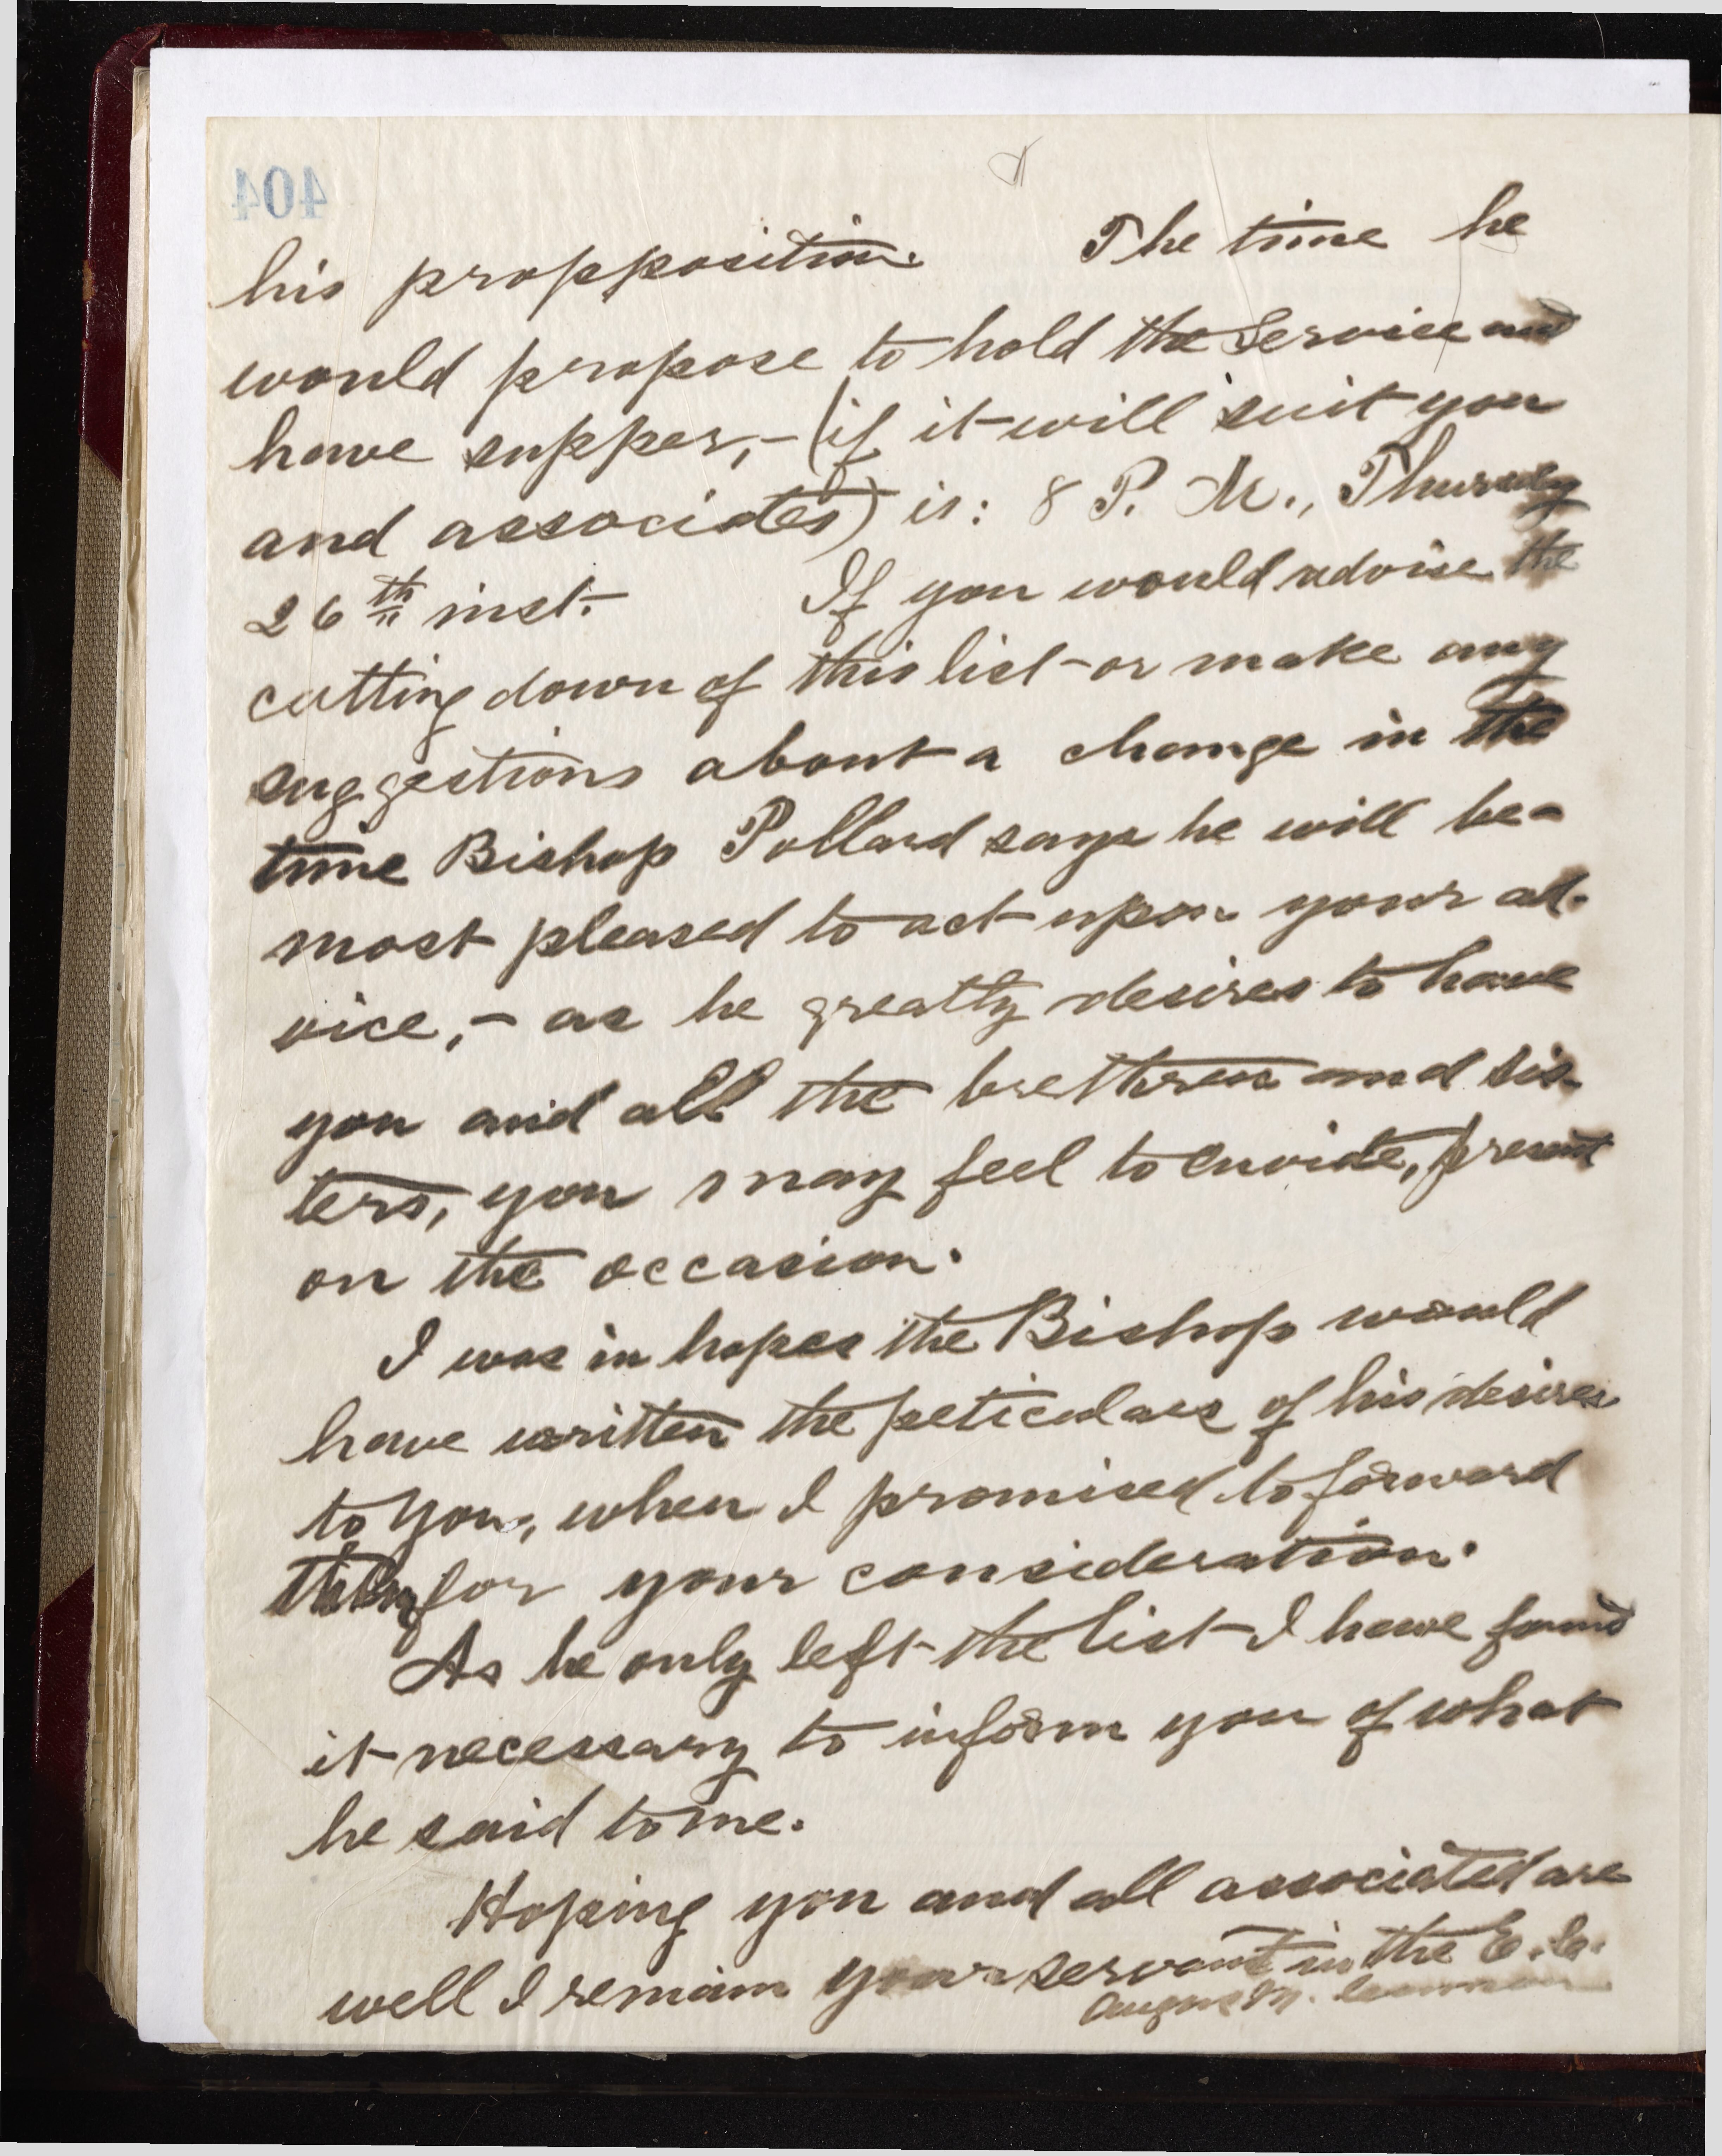 404
his propposition. The time he
would propose to hold the Service and
have supper,- (if it will suit you
and associates) is: 8 P. M., Thursday
26th inst.- If you would advise the
cutting down of this list or make any
suggestions about a change in the
time Bishop Pollard says he will be-
most pleased to act upon your ad-
vice,- as he greatly desires to have
you and all the brethren and sis-
ters, you may feel to envide, present
on the occasion.
I was in hopes the Bishop would
have written the peticulars of his desires
to you, when I promised to forward
them for your consideration.
As he only left the list I have found
it necessary to inform you of what
he said to me.
Hoping you and all associated are
well I remain your servant in the
Angus M. Cannon